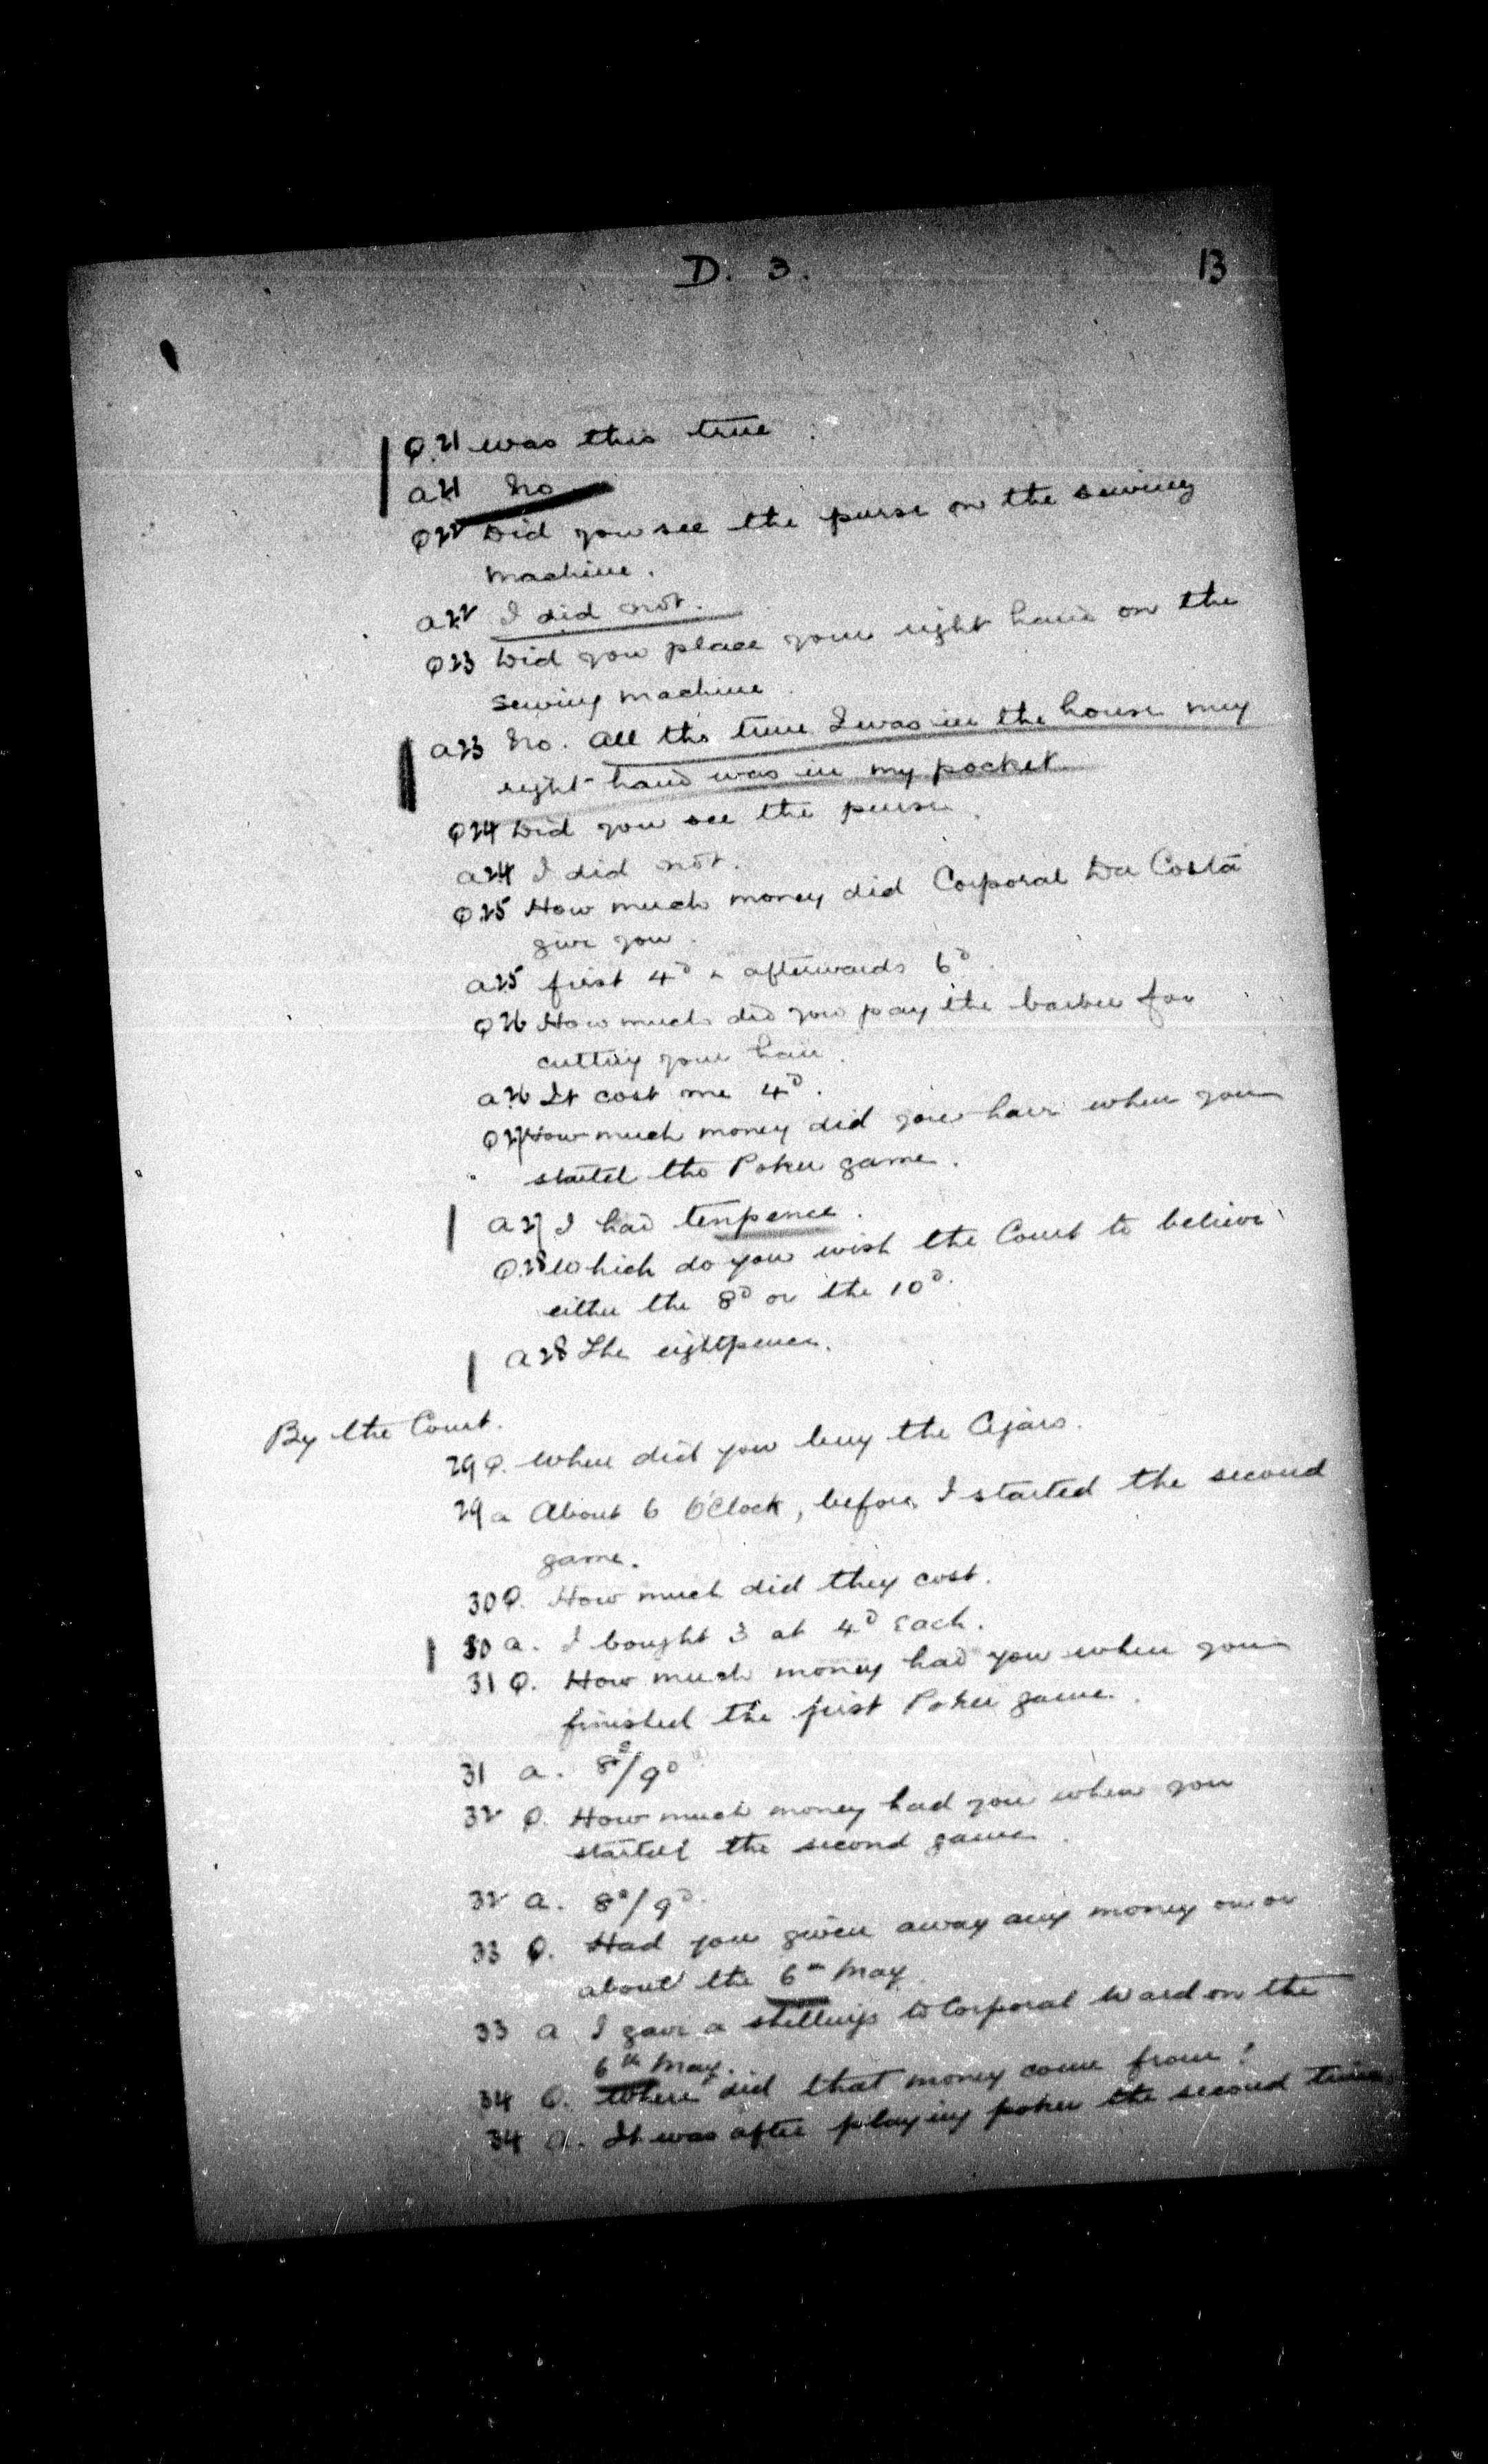 D. 3. 13
Q.21 was this true
a21 No
Q22 Did you see the purse on the sewing
machine.
a22 I did not.
Q23 Did you place your right hand on the
sewing machine.
a23 No. all the time I was in the house my
right hand was in my pocket
Q24 Did you see the purse.
a24 I did not.
Q25 How much money did Corporal Da Costa
give you.
a25 first 4ᴰ & afterwards 6ᴰ.
Q26 How much did you pay the barber for
cutting your hair.
a26 It cost me 4ᴰ.
Q27 How much money did you have when you
started the Poker game.
a27 I had tenpence.
Q.28 Which do you wish the Court to believe
either the 8ᴰ or the 10ᴰ.
a28 The eightpence.
By the Court.
29 Q. When did you buy the Cigars.
29 a About 6 O'Clock, before I started the second
game.
30 Q. How much did they cost.
30 a. I bought 3 at 4ᴰ Each.
31 Q. How much money had you when you
finished the first Poker game.
31 a. 8ˢ/9ᴰ
32 Q. How much money had you when you
started the second game.
32 a. 8ˢ/9ᴰ.
33 Q. Had you given away any money on or
about the 6ᵗʰ May.
33 a I gave a shillings to Corporal Ward on the
6ᵗʰ May.
34 Q. Where did that money come from?
34 a. It was after playing poker the second time.